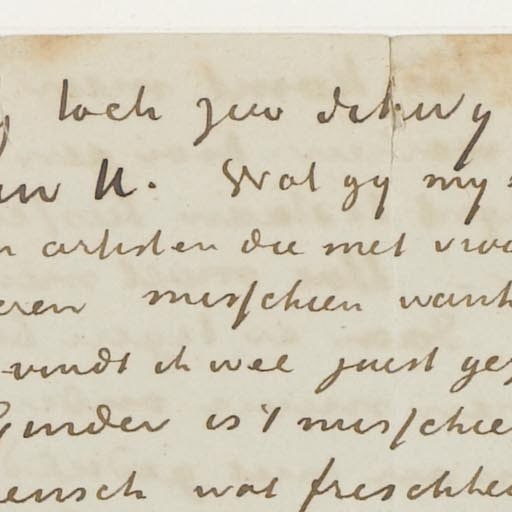 toch zeer dikwy
en U. Wat gy my
n artisten die met vro
eren misschien want
vindt ik wel juist ges
Ginder is 't misschie
ensch wat frischhe